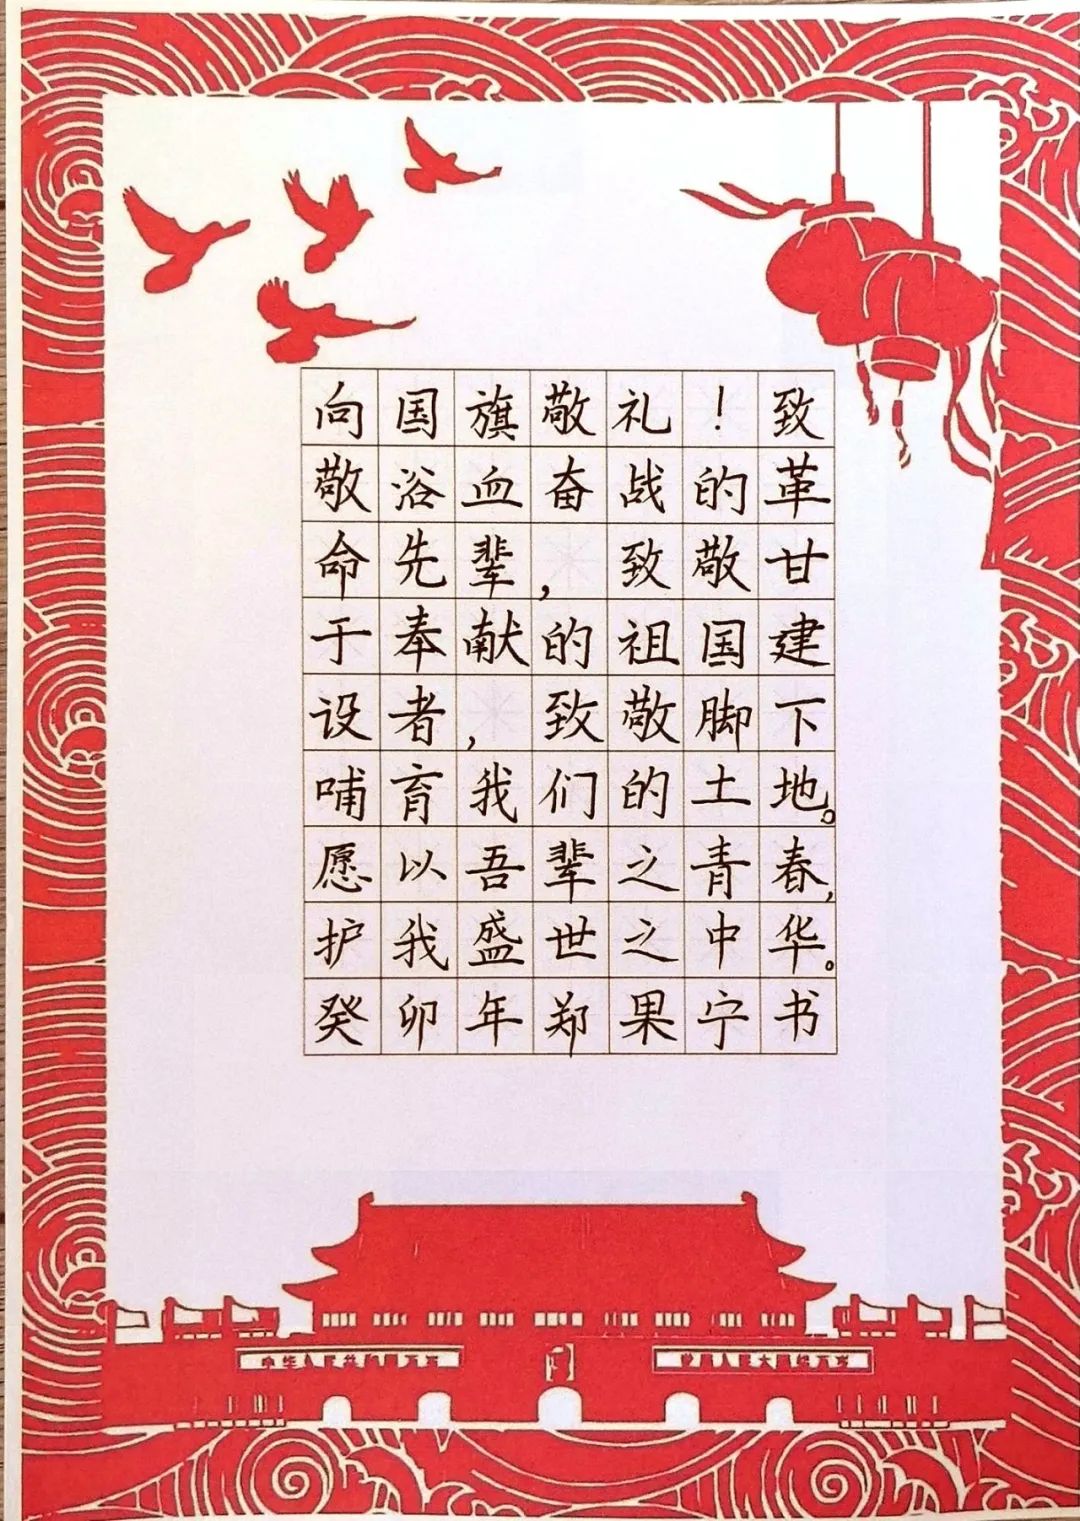 向国旗敬礼！致
敬浴血奋战的革
命先辈，致敬甘
于奉献的祖国建
设者，致敬脚下
哺育我们的土地。
愿以吾辈之青春，
护我盛世之中华。
癸卯年郑果宁书